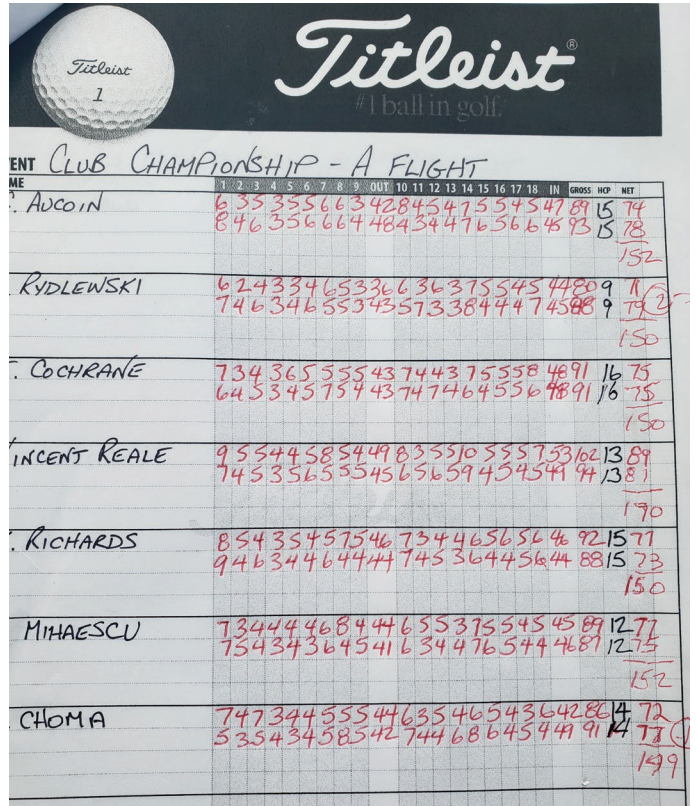 Titleist
1
Titleist®
#1 ball in golf.
ENT CLUB CHAMPIONSHIP - A FLIGHT
ME 1 2 3 4 5 6 7 8 9 OUT 10 11 12 13 14 15 16 17 18 IN GROSS HCP NET
. AUCOIN 6 3 5 3 5 5 6 6 3 42 8 4 5 4 7 5 5 4 5 47 89 15 74
8 4 6 3 5 6 6 6 4 48 4 3 4 4 7 6 5 6 6 45 93 15 78
152
. RYDLEWSKI 6 2 4 3 3 4 6 5 3 36 6 3 6 3 7 5 5 4 5 44 80 9 71
7 4 6 3 4 6 5 5 3 43 5 7 3 3 8 4 4 4 7 45 88 9 79 2
150
. COCHRANE 7 3 4 3 6 5 5 5 5 43 7 4 4 3 7 5 5 5 8 48 91 16 75
6 4 5 3 4 5 7 5 4 43 7 4 7 4 6 4 5 5 6 48 91 16 75
150
INCENT REALE 9 5 5 4 4 5 8 5 4 49 8 3 5 5 10 5 5 5 7 53 102 13 89
7 4 5 3 5 6 5 5 5 45 6 5 6 5 9 4 5 4 5 49 94 13 81
170
. RICHARDS 8 5 4 3 5 4 5 7 5 46 7 3 4 4 6 5 6 5 6 46 92 15 77
9 4 6 3 4 4 6 4 4 44 7 4 5 3 6 4 4 5 6 44 88 15 73
150
MIHAESCU 7 3 4 4 4 4 6 8 4 44 6 5 5 3 7 5 5 4 5 45 89 12 77
7 5 4 3 4 3 6 4 5 41 6 3 4 4 7 6 5 4 4 46 87 12 75
152
. CHOMA 7 4 7 3 4 4 5 5 5 44 6 3 5 4 6 5 4 3 6 42 86 14 72
5 3 5 4 3 4 5 8 5 42 7 4 4 6 8 6 4 5 4 49 91 14 77
149